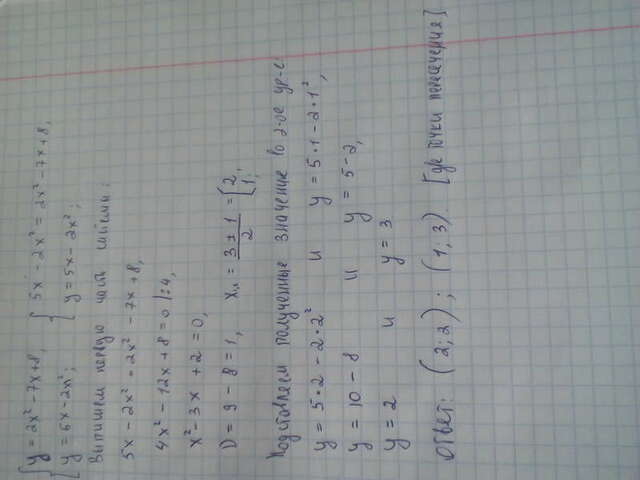 { y = 2x² - 7x + 8, { 5x - 2x² = 2x² - 7x + 8,
{ y = 5x - 2x²; { y = 5x - 2x²;
Выпишем первую часть системы:
5x - 2x² = 2x² - 7x + 8,
4x² - 12x + 8 = 0 |:4,
x² - 3x + 2 = 0,
D = 9 - 8 = 1, x₁,₂ = (3 ± 1)/2 = [2, 1;
Подставляем полученные значение во 2-ое ур-е
y = 5·2 - 2·2² и y = 5·1 - 2·1²,
y = 10 - 8 и y = 5 - 2,
y = 2 и y = 3
Ответ: (2; 2) ; (1; 3). [две точки пересечения]